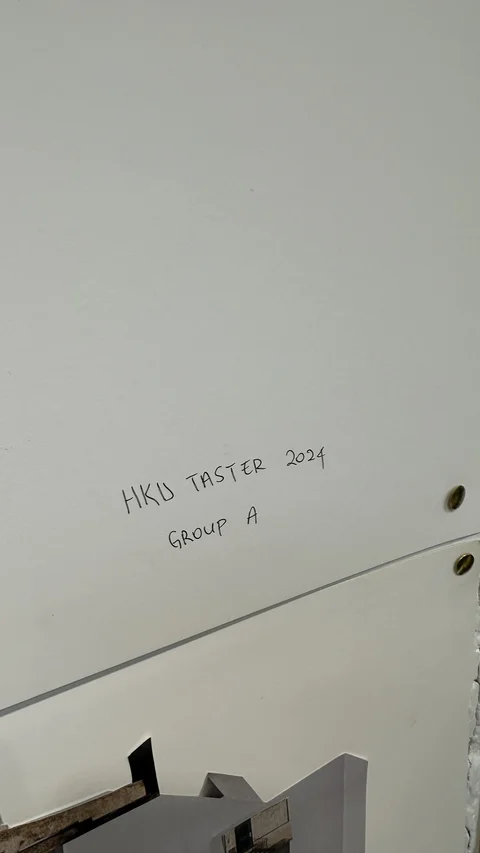 HKU TASTER 2024
GROUP A